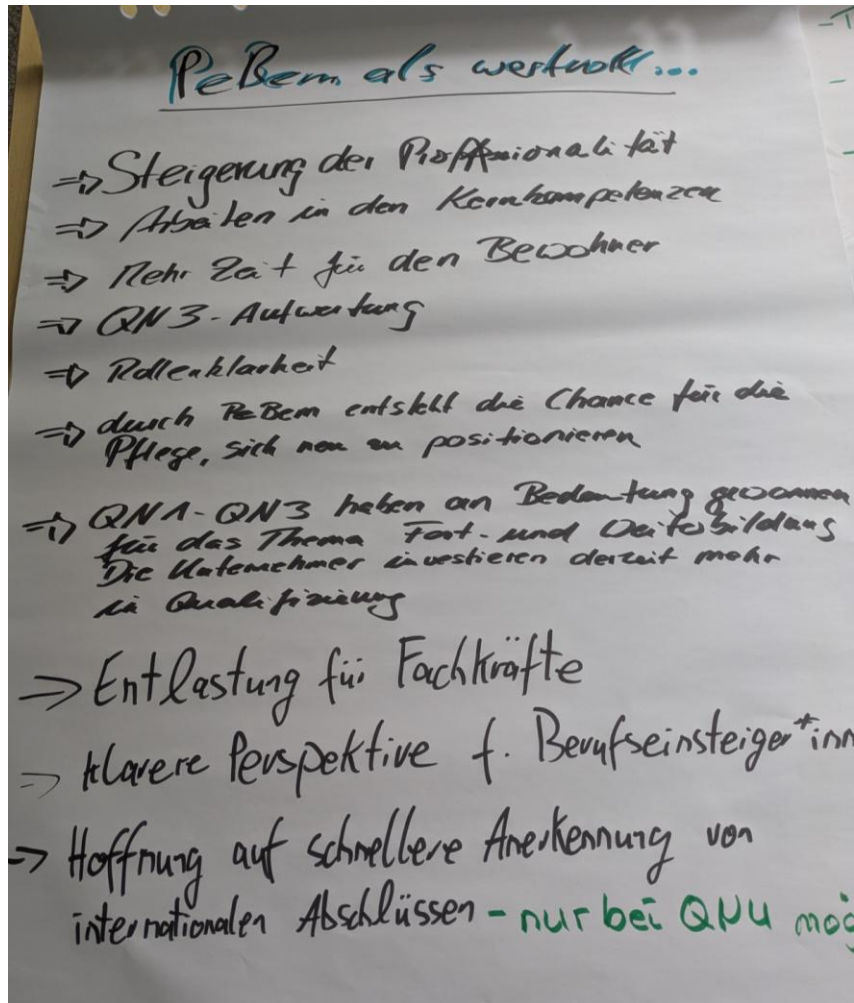 PeBem als wertvoll...
=> Steigerung der Professionalität
=> Arbeiten in den Kernkompetenzen
=> Mehr Zeit für den Bewohner
=> QN3-Aufwertung
=> Rollenklarheit
=> durch PeBem entsteht die Chance für die
Pflege, sich neu zu positionieren
=> QN1-QN3 haben an Bedeutung gewonnen
für das Thema Fort- und Weiterbildung
Die Unternehmer investieren derzeit mehr
in Qualifizierung
=> Entlastung für Fachkräfte
=> klarere Perspektive f. Berufseinsteiger*inn
=> Hoffnung auf schnellere Anerkennung von
internationalen Abschlüssen - nur bei QN4 mög